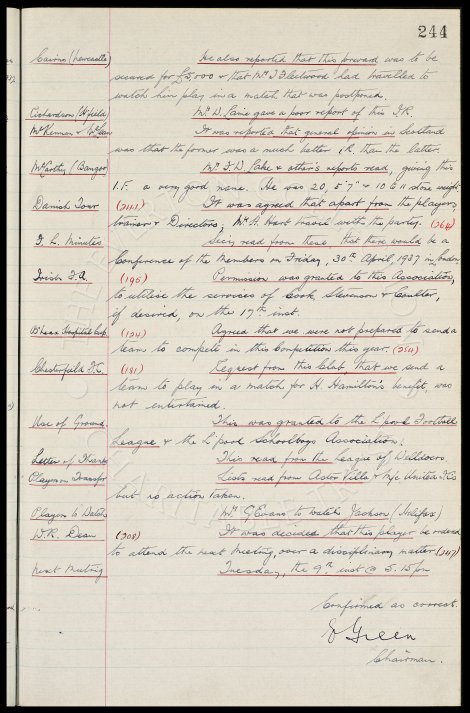 244
Cairns (Newcastle) He also reported that this forward was to be
secured for £5,000 & that Mr J Fleetwood had travelled to
watch him play in a match that was postponed.
Richardson (H'field Mr D. Laing gave a poor report of this I.R.
McKennan & McLean It was reported that general opinion in Scotland
was that the former was a much better I.R. than the latter.
McCarthy (Bangor) Mr F.D. Lake & other's reports read, giving this
I.F. a very good name. He was 20, 5'7" & 10 & 11 stone weight
Danish Tour (241) It was agreed that apart from the players,
trainer & Directors, Mr A. Hart travel with the party. (264)
F. L. Minutes Seeing read from these that there would be a
Conference of the Members on Friday, 30th April 1937 in London
Irish F.A. (195) Permission was granted to this Association,
to utilise the services of Cook, Stevenson & Coulter,
if desired, on the 17th inst.
Hospitals Cup (124) Agreed that we were not prepared to send a
team to compete in this Competition this year. (254)
Chesterfield F.C. (181) Request from this Club that we send a
team to play in a match for H. Hamilton's benefit, was
not entertained.
Use of Ground This was granted to the L'pool Football
League & the L'pool Schoolboys Association.
Letter of Thanks This read from the League of Welldoers
Players on Transfer Lists read from Aston Villa & M/c United F.Cs
but no action taken.
Players to Watch Mr G Evans to watch Jackson (Halifax)
W.R. Dean (208) It was decided that this player be ordered
to attend the next meeting, over a disciplinary matter (247)
Next Meeting Tuesday, the 9th inst @ 5.15 pm
Confirmed as correct.
E Green
Chairman.